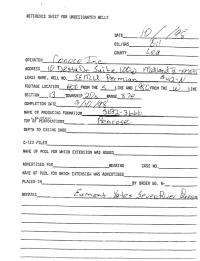 REFERENCE SHEET FOR UNDESIGNATED WELLS
DATE 10/ /95
OIL/GAS Oil
COUNTY Lea
OPERATOR Conoco Inc.
ADDRESS 10 Desta Dr. Suite 100W Midland
LEASE NAME, WELL NO. SEMU Permian
FOOTAGE LOCATION FROM THE S LINE AND FROM THE W LINE
SECTION 13 TOWNSHIP 20s RANGE 37e
COMPLETION DATE
NAME OF PRODUCING FORMATION
TOP OF PERFORATIONS Penrose
DEPTH TO CASING SHOE
C-123 FILED
NAME OF POOL FOR WHICH EXTENSION WAS ASKED
ADVERTISED FOR HEARING CASE NO.
NAME OF POOL FOR WHICH EXTENSION WAS ADVERTISED
PLACED IN BY ORDER NO. R-
REMARKS Eumont Yates Seven Rivers